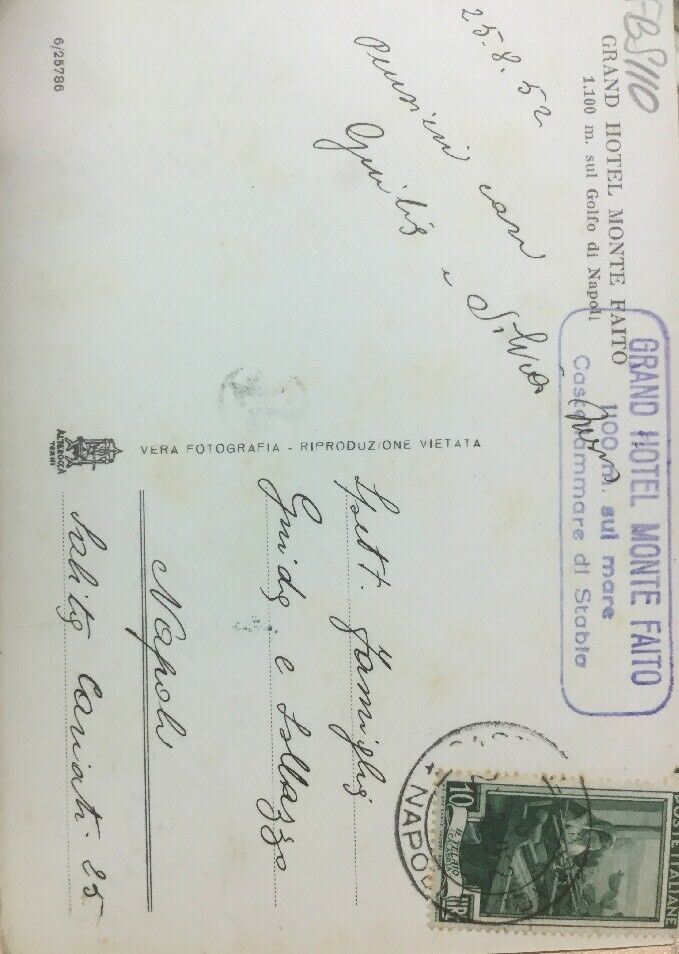 FBS110
GRAND HOTEL MONTE FAITO
1.100 m. sul Golfo di Napoli
25.8.52
pensieri cari
Guilis e Silvia
GRAND HOTEL MONTE FAITO
1100 m. sul mare
Castellammare di Stabia
VERA FOTOGRAFIA - RIPRODUZIONE VIETATA
ALTEROCCA
TERNI
6/25786
POSTE ITALIANE
10 LIRE
NAPO
Spett. Famiglia
Guida e Sollazzo
Napoli
Salita Cariati 25